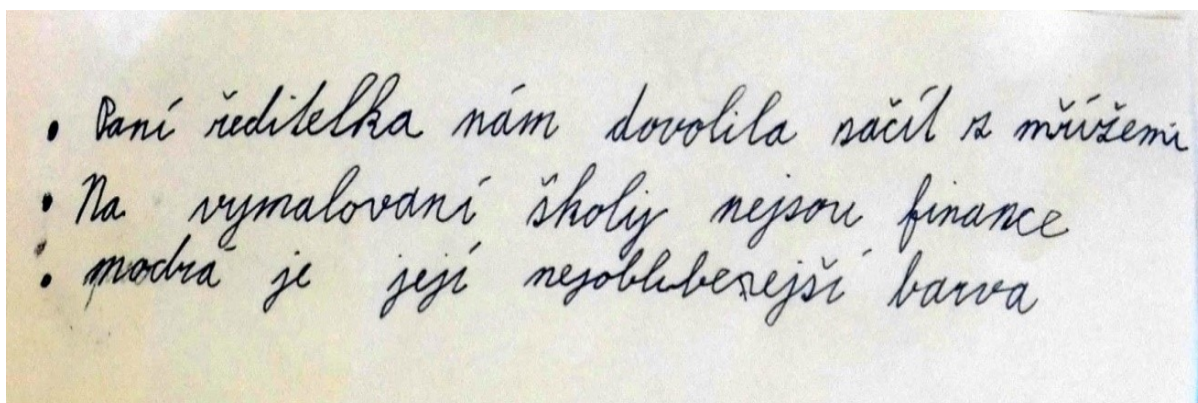 • Paní ředitelka nám dovolila začít s mřížemi
• Na vymalování školy nejsou finance
• modrá je její nejoblubenejší barva